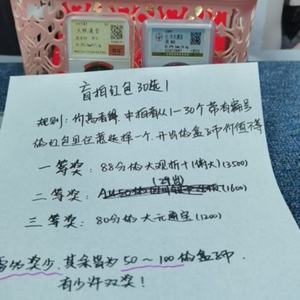 盲拍红包30选1
规则: 价高者得 中拍者从1-30个带有编号
的红包里任意选择一个,开出的盒子币价值不等
一等奖: 88分的大观折十(精大)(13500)
二等奖: (1600)
三等奖: 80分的大元通宝(1200)
奖少,其余皆为50~100的盒子币
有少许双奖!